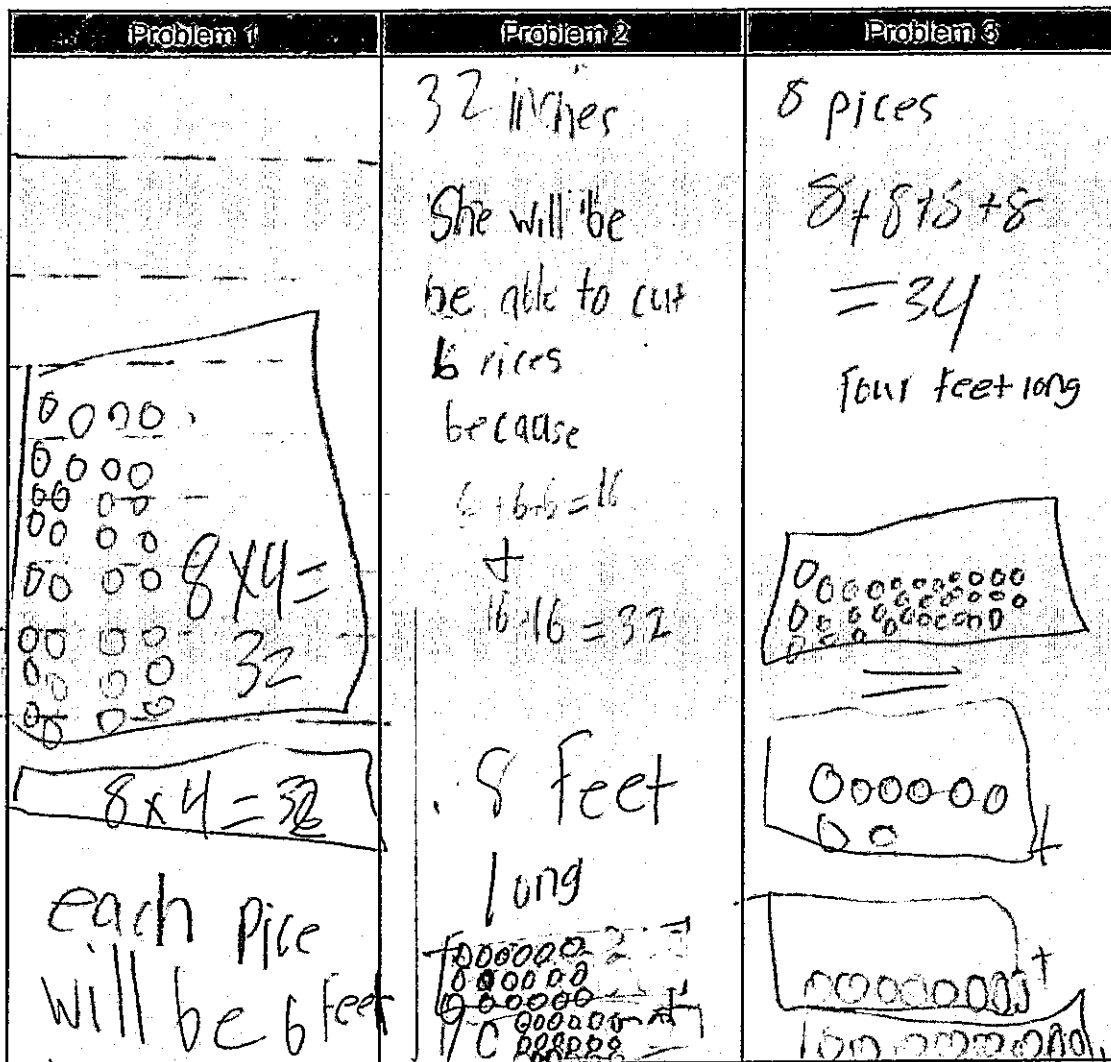 Problem 1
8x4=
32
8x4=32
each pice
will be 6 feet
Problem 2
32 inches
She will be
be able to cut
6 rices
because
6+6+6=16
+
16+16=32
8 feet
long
Problem 3
8 pices
8+8+8+8
=34
four feet long
=
+
+